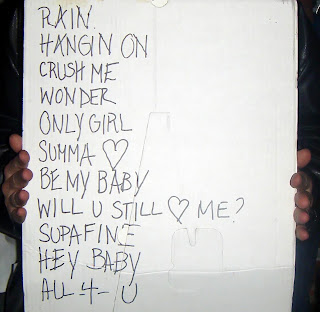 RAIN.
HANGIN ON
CRUSH ME
WONDER
ONLY GIRL
SUMMA ♡
BE MY BABY
WILL U STILL ♡ ME?
SUPAFINE
HEY BABY
ALL -4- U